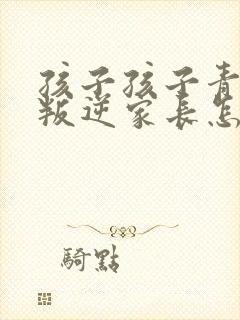 孩子孩子青
叛逆家长怎
骑點